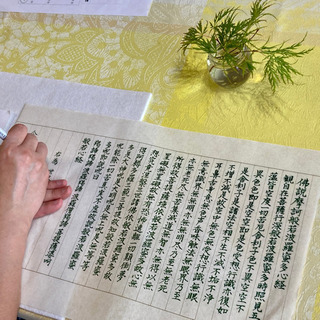 佛說摩訶般若波羅蜜多心經
觀自在菩薩行深般若波羅蜜多時照見五
蘊皆空度一切苦厄舍利子色不異空空不
異色色即是空空即是色受想行識亦復如
是舍利子是諸法空相不生不滅不垢不淨
不增不減是故空中無色無受想行識無眼
耳鼻舌身意無色聲香味觸法無眼界乃至
無意識界無無明亦無無明盡乃至無老死
亦無老死盡無苦集滅道無智亦無得以無
所得故菩提薩埵依般若波羅蜜多故心無
罣礙無罣礙故無有恐怖遠離一切顛倒夢
想究竟涅槃三世諸佛依般若波羅蜜多故
得阿耨多羅三藐三菩提故知般若波羅蜜
多是大神呪是大明呪是無上呪是無等等
呪能除一切苦真實不虛故說般若波羅蜜
多呪即說呪曰
揭諦揭諦波羅揭諦波羅僧揭諦菩提薩婆訶
般若心經